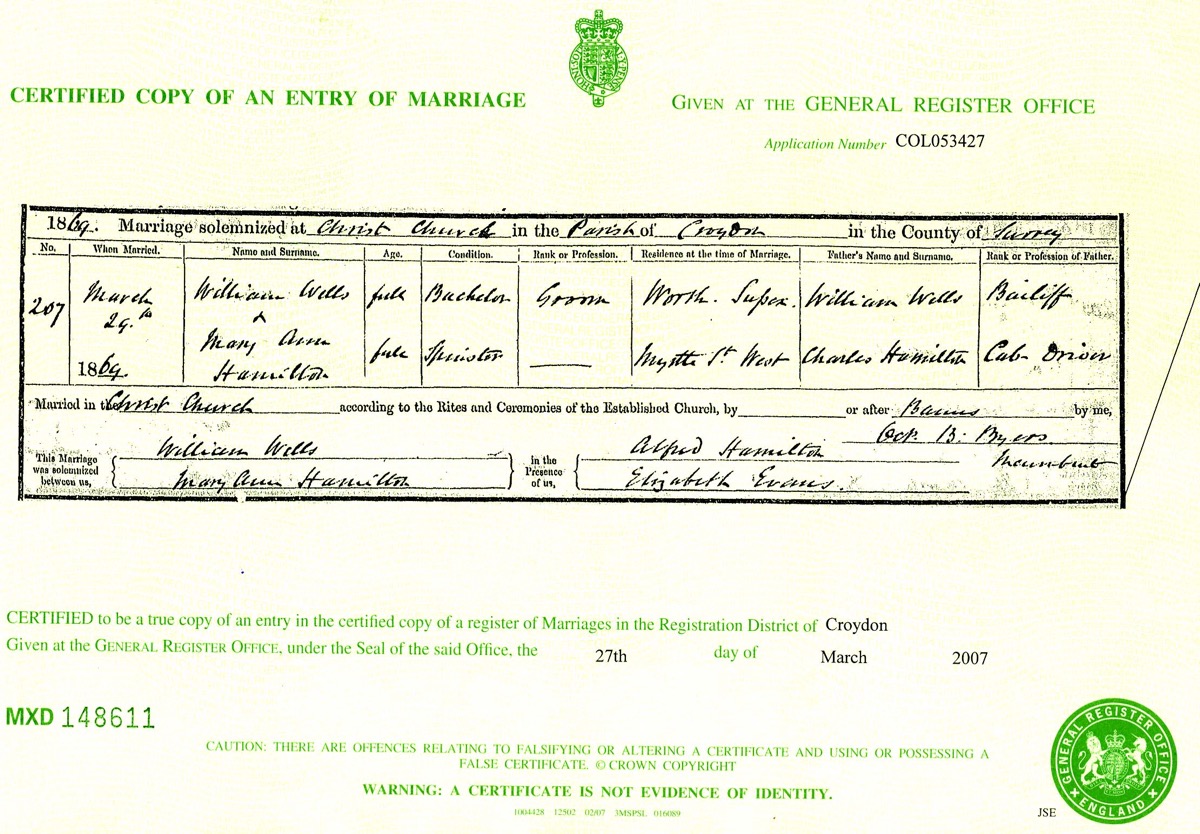 CERTIFIED COPY OF AN ENTRY OF MARRIAGE
GIVEN AT THE GENERAL REGISTER OFFICE
Application Number COL053427
1869. Marriage solemnized at Christ Church in the Parish of Croydon in the County of Surrey
No. When Married. Name and Surname. Age. Condition. Rank or Profession. Residence at the time of Marriage. Father's Name and Surname. Rank or Profession of Father.
207 March 29th 1869. William Wells full Bachelor Groom Worth. Sussex. William Wells Bailiff
Mary Ann Hamilton full Spinster Myrtle St West Charles Hamilton Cab Driver
Married in the Christ Church according to the Rites and Ceremonies of the Established Church, by or after Banns by me,
B. Byers
This Marriage was solemnized between us, William Wells Mary Ann Hamilton in the Presence of us, Alfred Hamilton Elizabeth Evans.
CERTIFIED to be a true copy of an entry in the certified copy of a register of Marriages in the Registration District of Croydon
Given at the GENERAL REGISTER OFFICE, under the Seal of the said Office, the 27th day of March 2007
MXD 148611
CAUTION: THERE ARE OFFENCES RELATING TO FALSIFYING OR ALTERING A CERTIFICATE AND USING OR POSSESSING A
FALSE CERTIFICATE. © CROWN COPYRIGHT
WARNING: A CERTIFICATE IS NOT EVIDENCE OF IDENTITY.
1004428 12502 02/07 3MSPSL 016089
JSE
GENERAL REGISTER OFFICE
ENGLAND